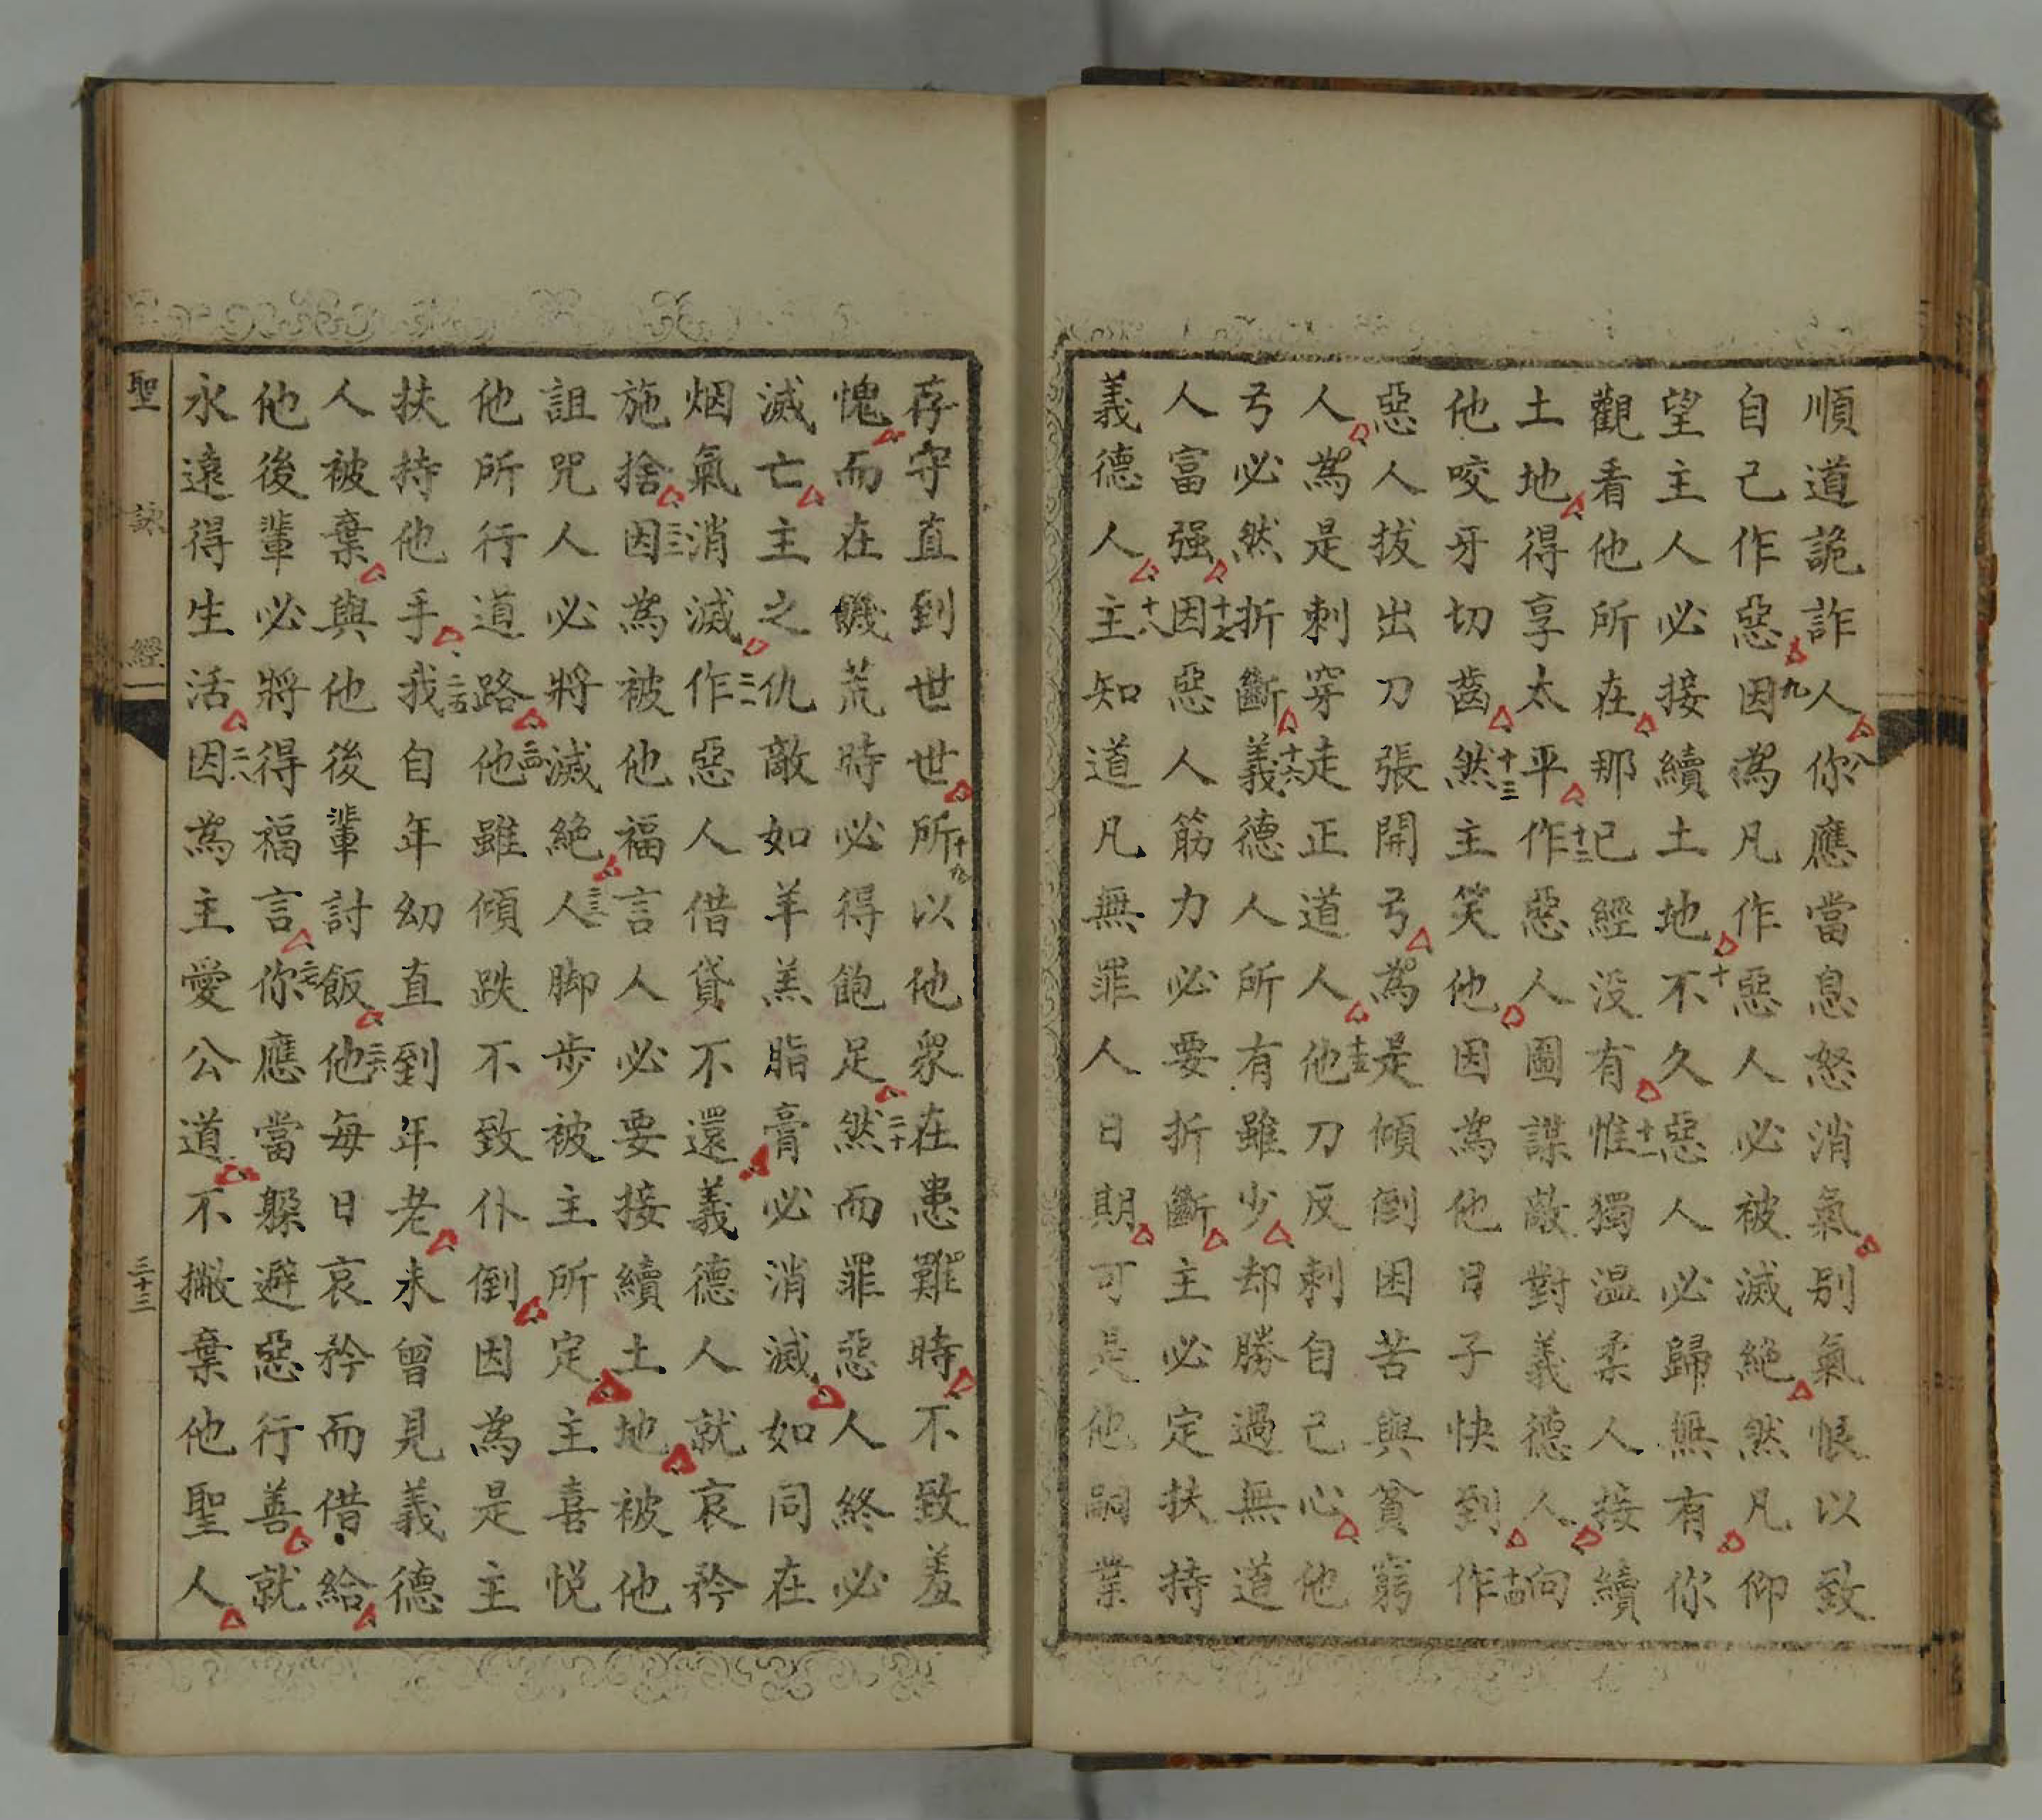 順道詭詐人八你應當息怒消氣別氣恨以致
自己作惡九因為凡作惡人必被滅絕然凡仰
望主人必接續土地十不久惡人必歸無有你
觀看他所在那已經沒有十一惟獨溫柔人接續
土地得享太平十二作惡人圖謀敵對義德人向
他咬牙切齒十三然主笑他因為他日子快到十四作
惡人拔出刀張開弓為是傾倒困苦與貧窮
人為是刺穿走正道人十五他刀反刺自己心他
弓必然折斷十六義德人所有雖少却勝過無道
人富强十七因惡人筋力必要折斷主必定扶持
義德人十八主知道凡無罪人日期可是他嗣業
存守直到世世十九所以他衆在患難時不致羞
愧而在饑荒時必得飽足二十然而罪惡人終必
滅亡主之仇敵如羊羔脂膏必消滅如同在
烟氣消滅二一作惡人借貸不還義德人就哀矜
施捨二二因為被他福言人必要接續土地被他
詛咒人必將滅絕二三人脚步被主所定主喜悅
他所行道路二四他雖傾跌不致仆倒因為是主
扶持他手二五我自年幼直到年老未曾見義德
人被棄與他後輩討飯二六他每日哀矜而借給
他後輩必將得福言二七你應當躲避惡行善就
永遠得生活二八因為主愛公道不撇棄他聖人
聖詠經一
三十三